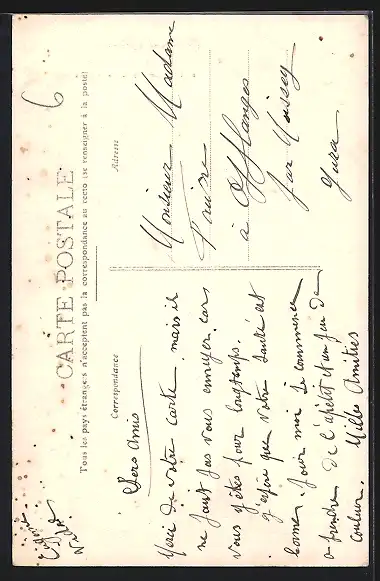 6
CARTE POSTALE
Tous les pays étrangers n'acceptent pas la correspondance au recto (se renseigner à la poste)
Correspondance
Adresse
Chers Amis
Merci de votre carte. mais il
ne faut pas vous ennuyer. car
vous y êtes pour longtemps.
J'espère que votre santé est
bonne. Pour moi je commence
a prendre de l'apetit et un peu de
couleur. Milles Amitiés
Monsieur Madame
à Offlanges
par Moissey
Jura